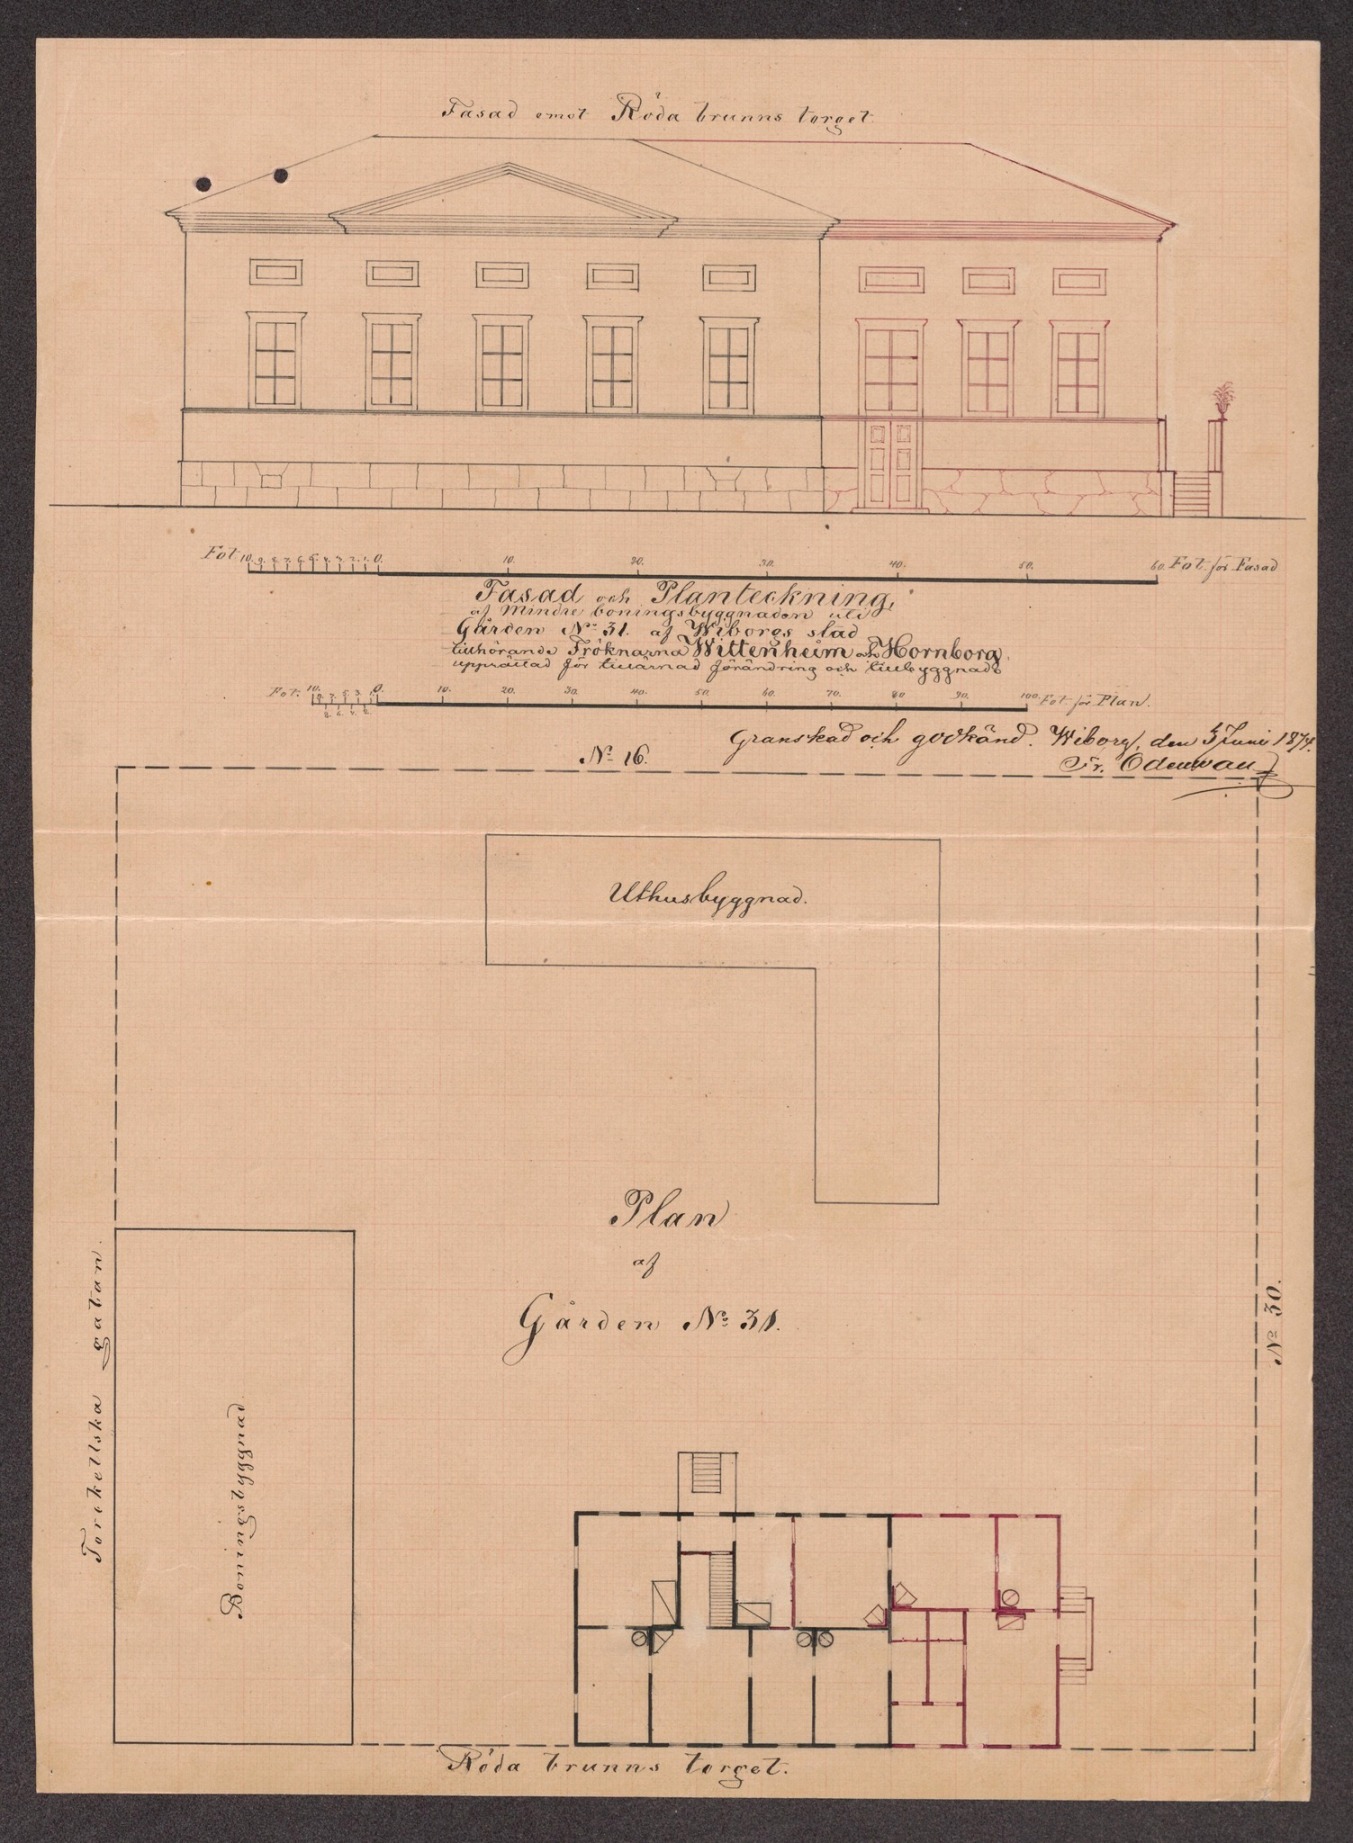 Fasad emot Röda brunns torget.
Fot. 10. 9. 8. 7. 6. 5. 4. 3. 2. 1. 0. 10. 20. 30. 40. 50. 60. Fot för Fasad
Fasad och Planteckning,
af mindre boningsbyggnaden uti
Gården No 31. af Wiborgs stad
tillhörande Fröknarna Wittenheim och Hornborg,
upprättad för tillärnad förändring och tillbyggnad
Fot. 10. 0. 10. 20. 30. 40. 50. 60. 70. 80 90. 100 Fot för Plan.
Granskad och godkänd. Wiborg, den 5 Juni 1874.
Fr. Odenwall
No 16.
Uthusbyggnad.
Plan
af
Gården No 31.
No 30.
Torkellska gatan.
Boningsbyggnad
Röda brunns torget.